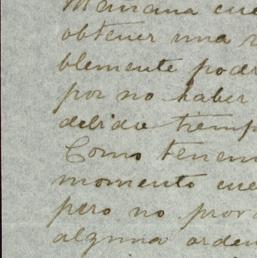 Mañana cue
obtener una
blemente podr
por no haber
debido tiemp
Como tenem
momento cue
pero no prov
alguna orden